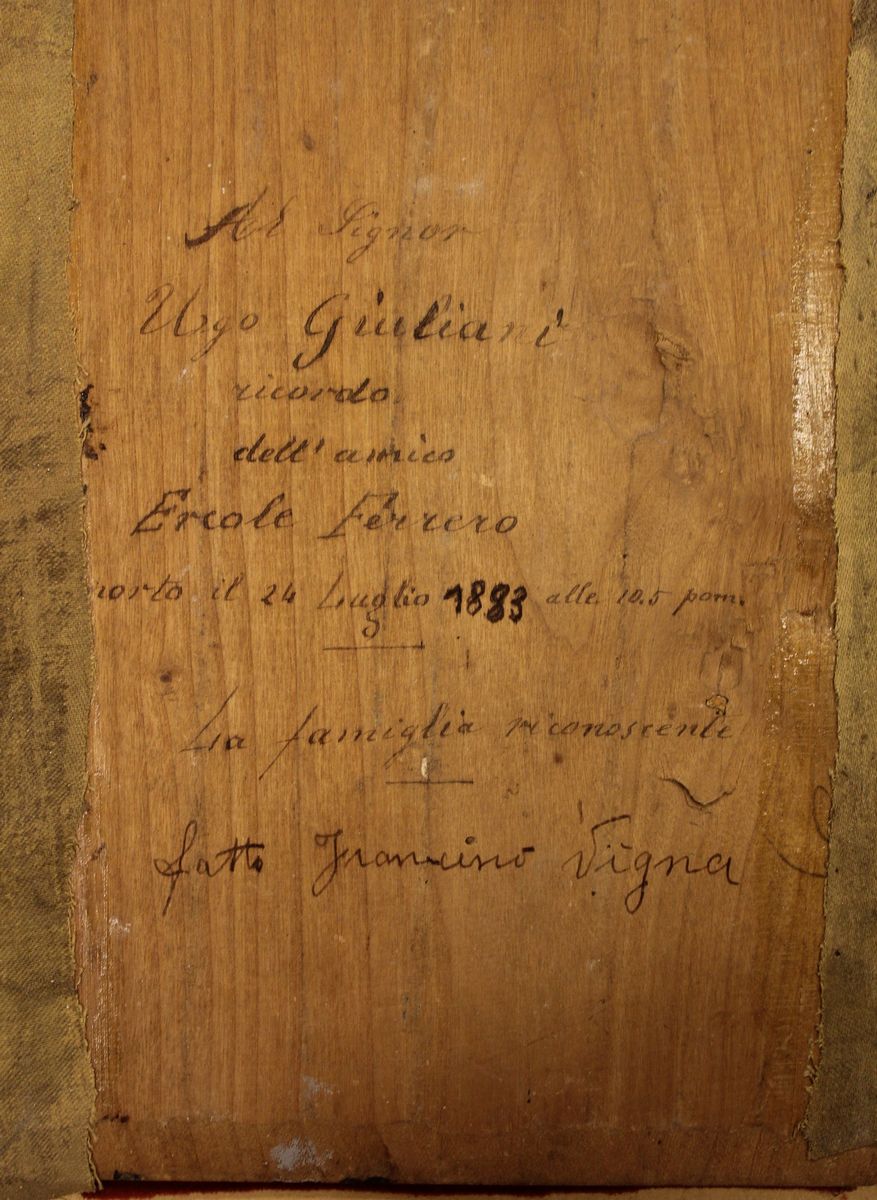 Al Signor
Ugo Giuliani
ricordo
dell' amico
Ercole Ferrero
morto il 24 Luglio 1883 alle 10.5 pom.
La famiglia riconoscente
fatto Francino Vigna